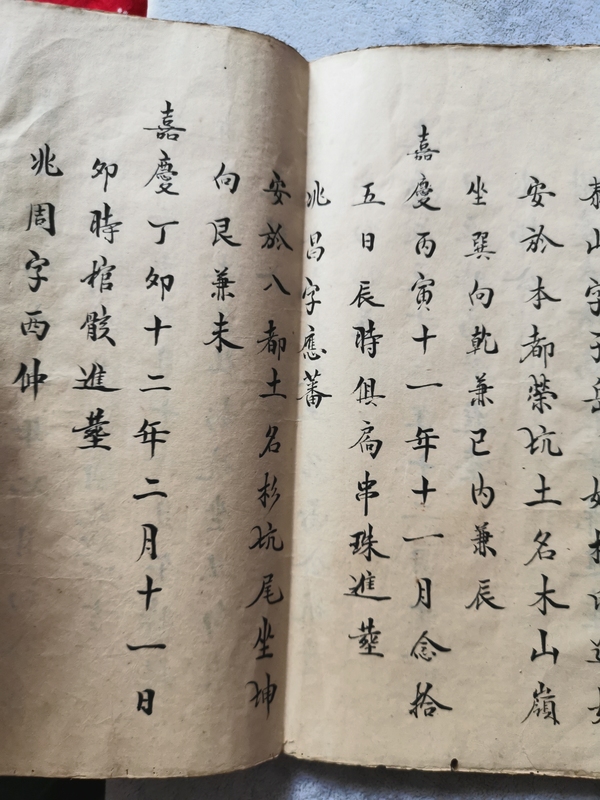 恭山字于岳
安於本都榮坑土名木山嶺
坐巽向乾兼巳內兼辰
嘉慶丙寅十一年十一月念拾
五日辰時俱扃串珠進塟
兆昌字應蕃
安於八都土名杉坑尾坐坤
向艮兼未
嘉慶丁卯十二年二月十一日
卯時棺骸進塟
兆周字西仲